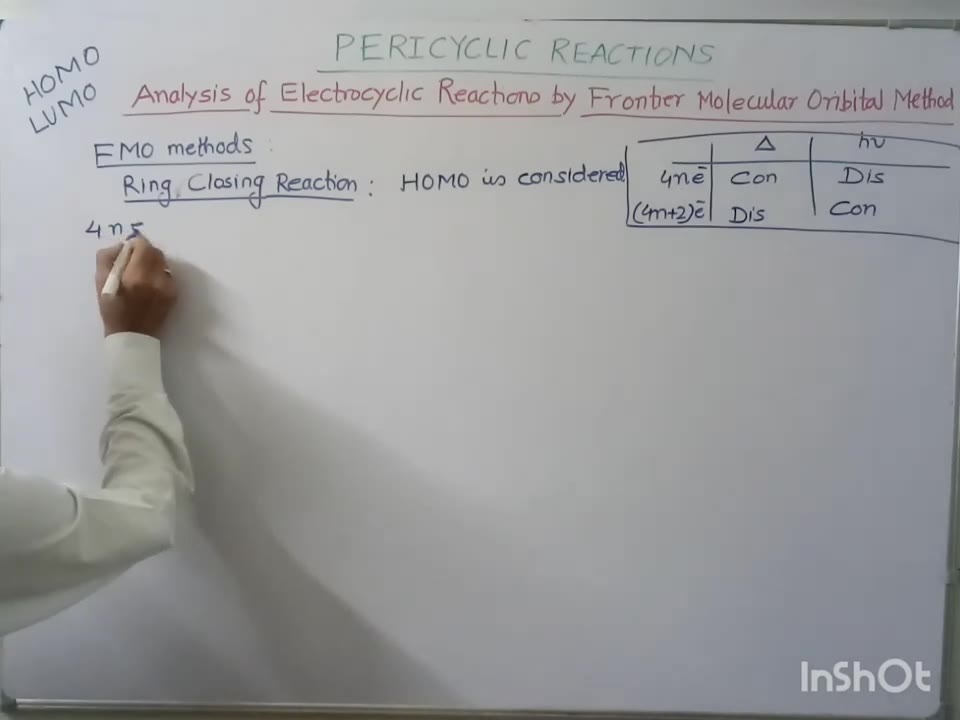 PERICYCLIC REACTIONS
HOMO
LUMO
Analysis of Electrocyclic Reactions by Frontier Molecular Oribital Method
FMO methods :
Δ hν
Ring Closing Reaction : HOMO is considered
4nē Con Dis
(4n+2)ē Dis Con
4n
InShOt